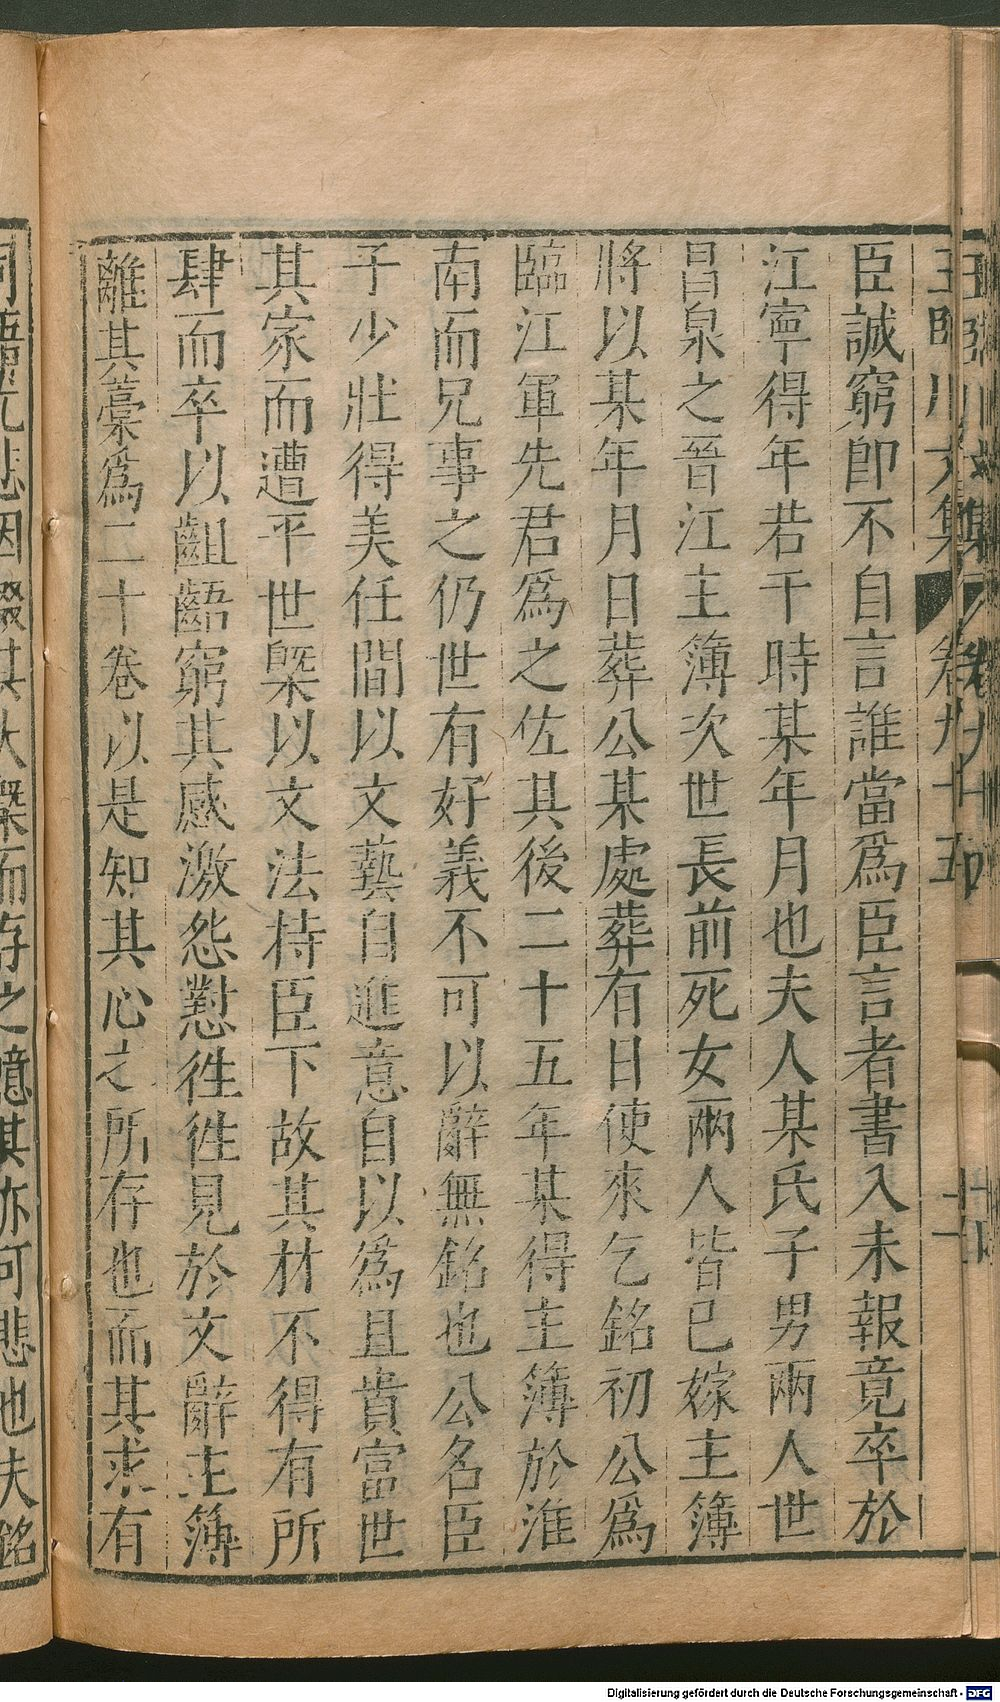 王臨川文集 卷九十五 十一
臣誠窮卽不自言誰當爲臣言者書入未報竟卒於
江寧得年若干時某年月也夫人某氏子男兩人世
昌泉之晉江主簿次世長前死女兩人皆已嫁主簿
將以某年月日葬公某處葬有日使來乞銘初公爲
臨江軍先君爲之佐其後二十五年某得主簿於淮
南而兄事之仍世有好義不可以辭無銘也公名臣
子少壯得美任間以文藝自進意自以爲且貴富世
其家而遭平世槩以文法待臣下故其材不得有所
肆而卒以齟齬窮其感激怨懟徃徃見於文辭主簿
離其藁爲二十卷以是知其心之所存也而其求有
其大槩而存之噫其亦可悲也夫銘
Digitalisierung gefördert durch die Deutsche Forschungsgemeinschaft - DFG